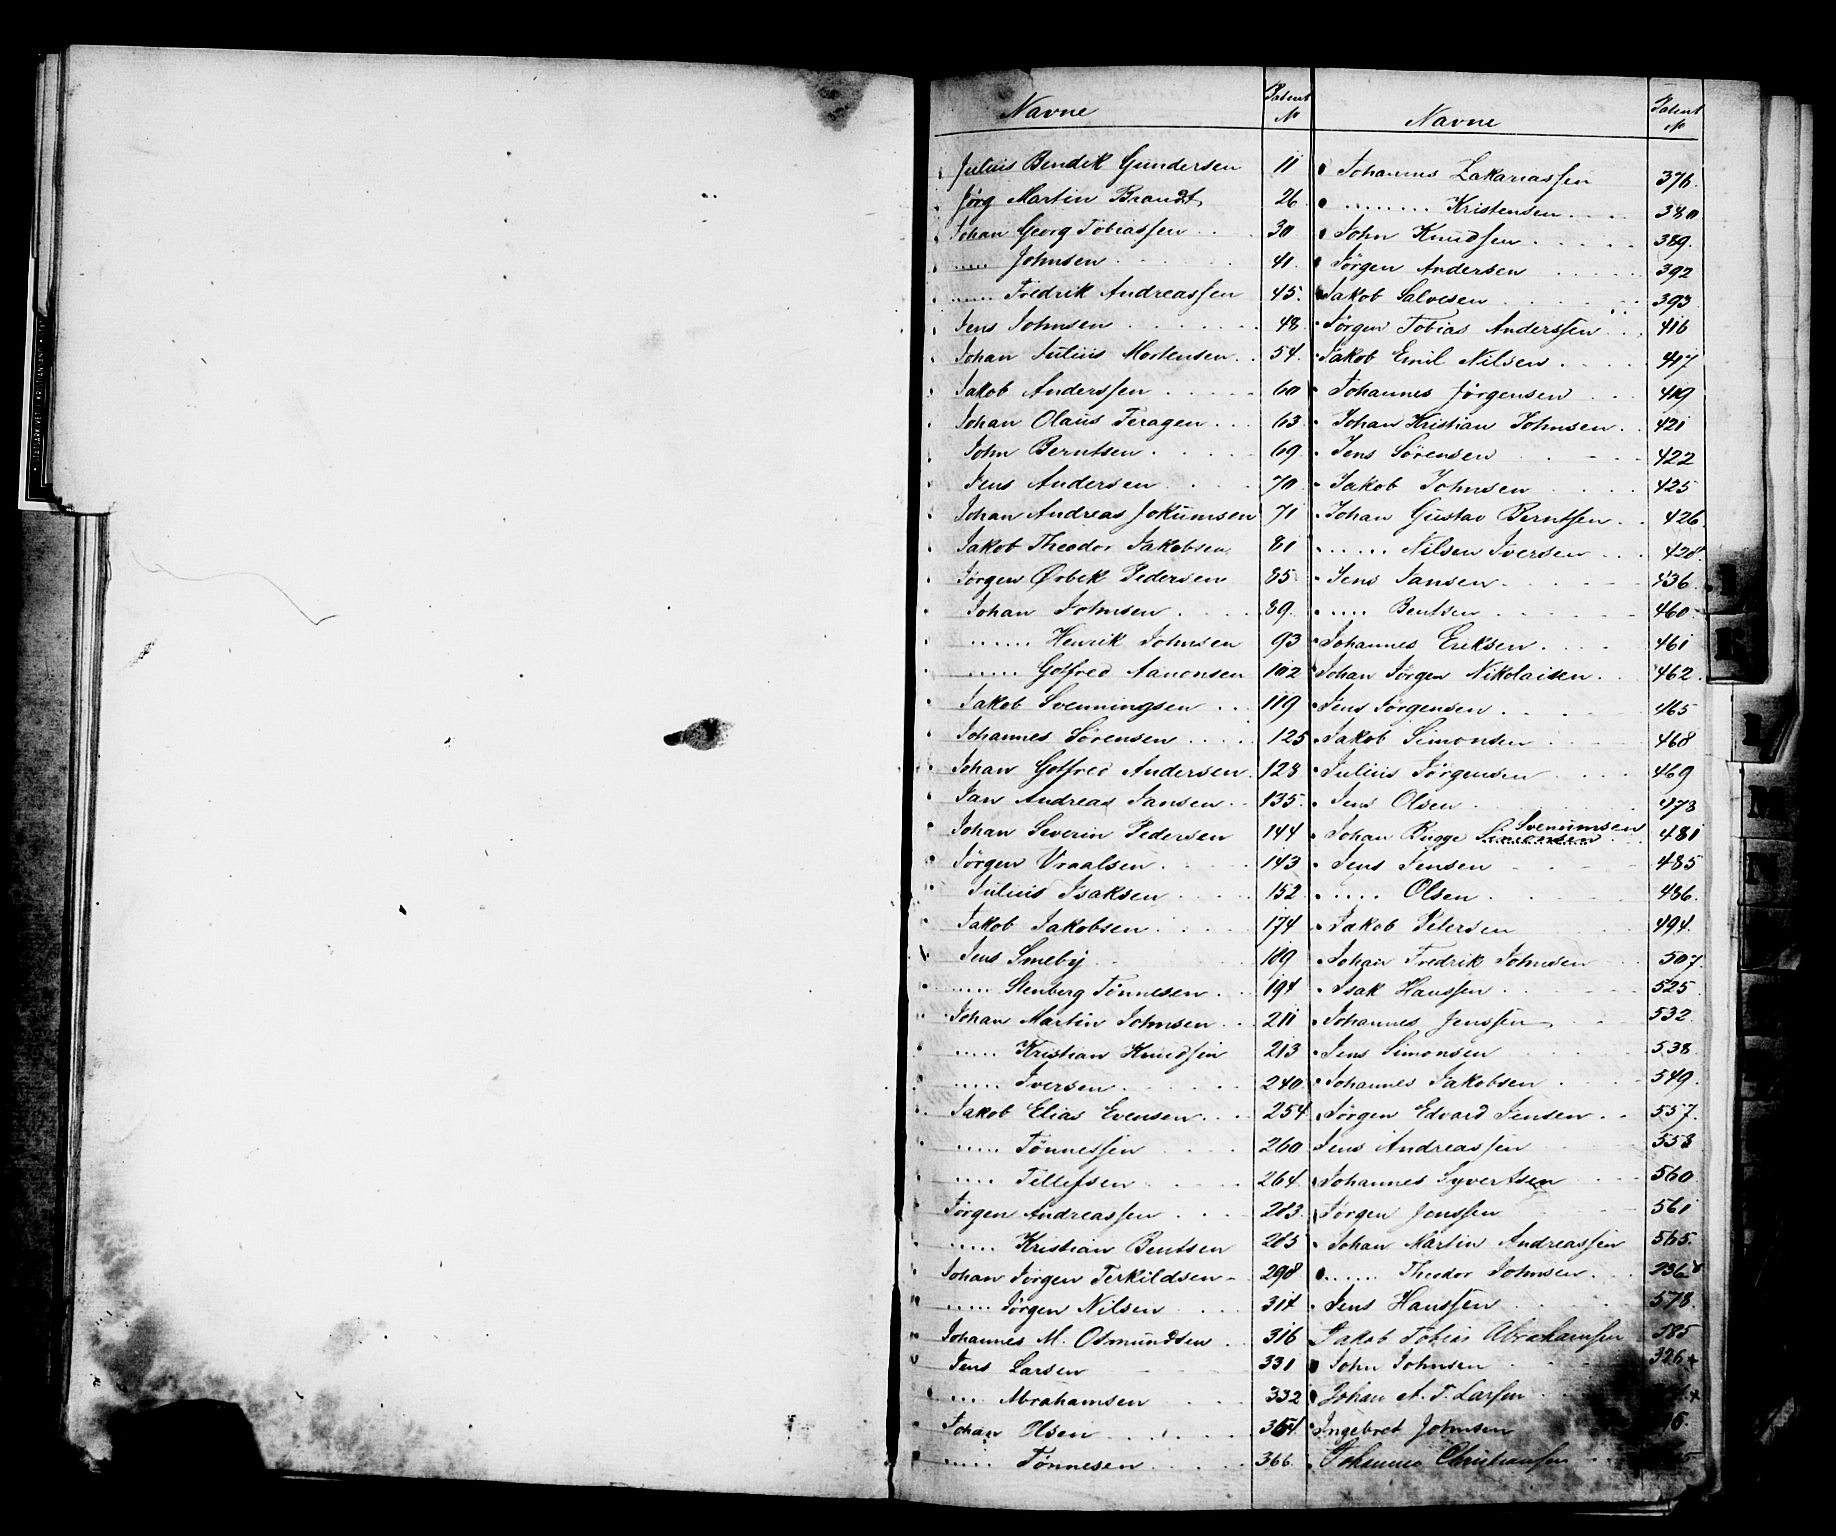 Navne Patent №
Julius Bendik Gundersen 11
Jörg Martin Brandt 26
Johan Georg Tobiassen 30
..... Johnsen 41
...... Fredrik Andreassen 45
Jens Johnsen 48
Johan Julius Mortensen 54
Jakob Anderssen 60
Johan Olaus Feragen 63
John Berntsen 69
Jens Andersen 70
Johan Andreas Jokumsen 71
Jakob Theodor Jakobsen 81
Jörgen Örbek Pedersen 85
Johan Johnsen 89
...... Henrik Johnsen 93
..... Gotfred Aanonsen 102
Jakob Svenningsen 119
Johannes Sörensen 125
Johan Gotfred Andersen 128
Jan Andreas Jansen 135
Johan Severin Pedersen 144
Jörgen Vraalsen 143
Julius Isaksen 152
Jakob Jakobsen 174
Jens Smeby 189
..... Stenberg Tönnesen 194
Johan Martin Johnsen 211
..... Kristian Knudsen 213
..... Iversen 240
Jakob Elias Evensen 254
..... Tönnessen 260
.... Tellefsen 264
Jörgen Andreassen 283
..... Kristian Bentsen 285
Johan Jörgen Terkildsen 298
..... Jörgen Nilsen 314
Johannes M. Osmundsen 316
Jens Larsen 331
.... Abrahamsen 332
Johan Olsen 364
..... Tönnesen 366
Navne Patent №
Johannes Zakariassen 376
........ Kristensen 380
John Knudsen 389
Jörgen Andersen 392
Jakob Salvesen 393
Jörgen Tobias Anderssen 416
Jakob Emil Nilsen 417
Johannes Jörgensen 419
Johan Kristian Johnsen 421
Jens Sörensen 422
Jakob Johnsen 425
Johan Gustav Berntsen 426
...... Nilsen Iversen 428
Jens Jansen 436
..... Bentsen 460
Johannes Eriksen 461
Johan Jörgen Nikolaisen 462
Jens Jörgensen 465
Jakob Simonsen 468
Julius Jörgensen 469
Jens Olsen 473
Svenumsen
Johan Bugge Simonsen 481
Jens Jensen 485
..... Olsen 486
Jakob Petersen 494
Johan Fredrik Johnsen 507
Isak Hanssen 525
Johannes Jenssen 532
Jens Simonsen 538
Johannes Jakobsen 549
Jörgen Edvard Jensen 557
Jens Andreassen 558
Johannes Syvertsen 560
Jörgen Jonssen 561
Johan Martin Andreassen 565
...... Theodor Johnsen 236
Jens Hanssen 578
Jakob Tobias Abrahamsen 585
John Johnsen 326
Johan A. T. Larsen
Ingebret Johnsen
Johannes Christiansen
STATSARKIVET I KRISTIANSAND
I
K
L
M
N